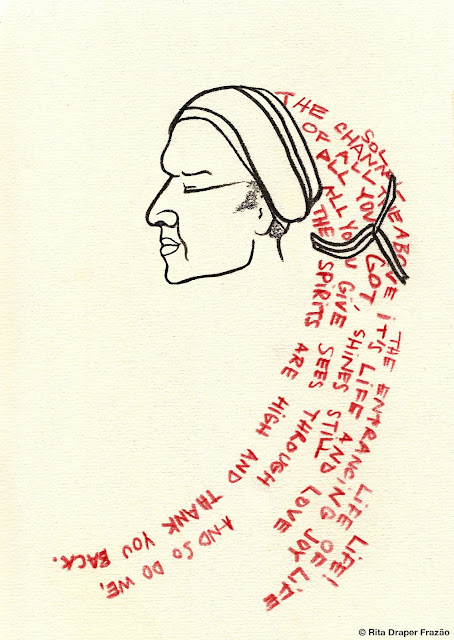 THE
OF ALL THE SPIRITS ARE HIGH AND THANK YOU BACK.
ALL YOU GIVE SEES THROUGH AND SO DO WE,
ALL YOU GOT, SHINES STILL LOVE
THE ABOVE IT'S LIFE AND OF JOY LIFE
THE ENTRANCING LIFE LIFE!
© Rita Draper Frazão